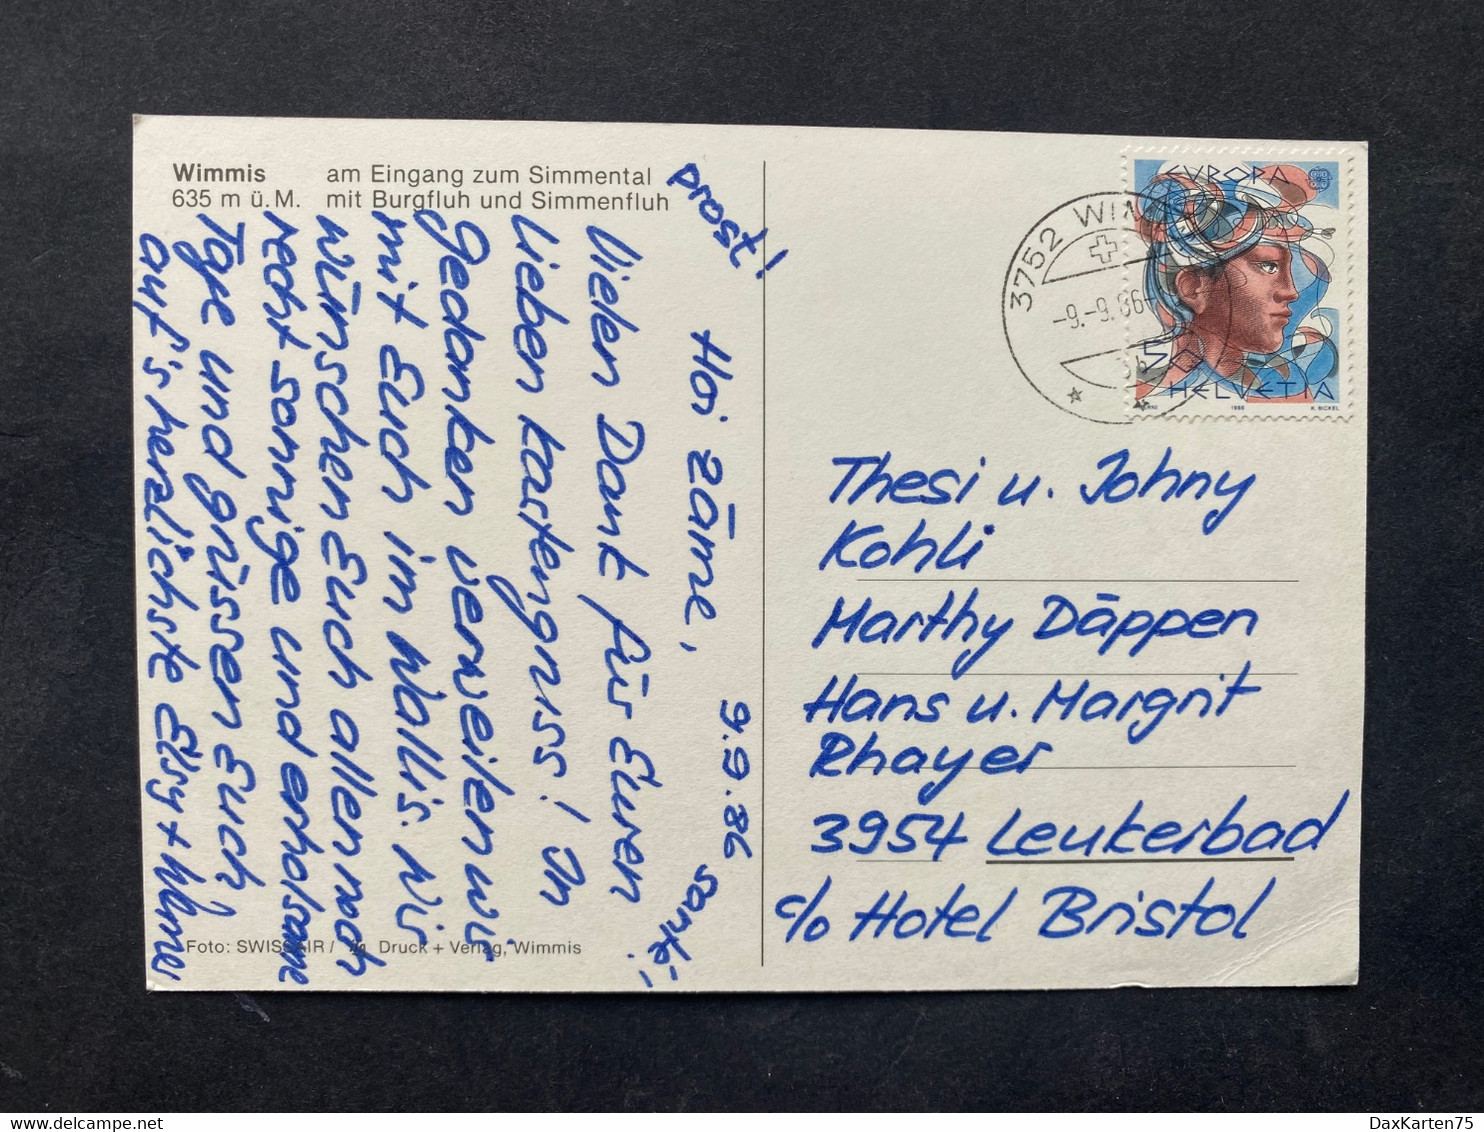 Wimmis am Eingang zum Simmental
635 m ü. M. mit Burgfluh und Simmenfluh
prost!
Hoi zäme, 9.9.86
santé!
Vielen Dank für Euren
lieben Kastengruss! In
Gedanken verweilen wir
mit Euch im Wallis. Wir
wünschen Euch allen noch
recht sonnige und erholsame
Tage und grüssen Euch
auf's herzlichste Elsy +
Foto: SWISSAIR / Druck + Verlag, Wimmis
3752 WIMMIS
-9.-9.86-
EVROPA
50
HELVETIA
1986 K. BICKEL
Thesi u. Johny
Kohli
Marthy Däppen
Hans u. Margrit
Rhayer
3954 Leukerbad
c/o Hotel Bristol
DaxKarten75